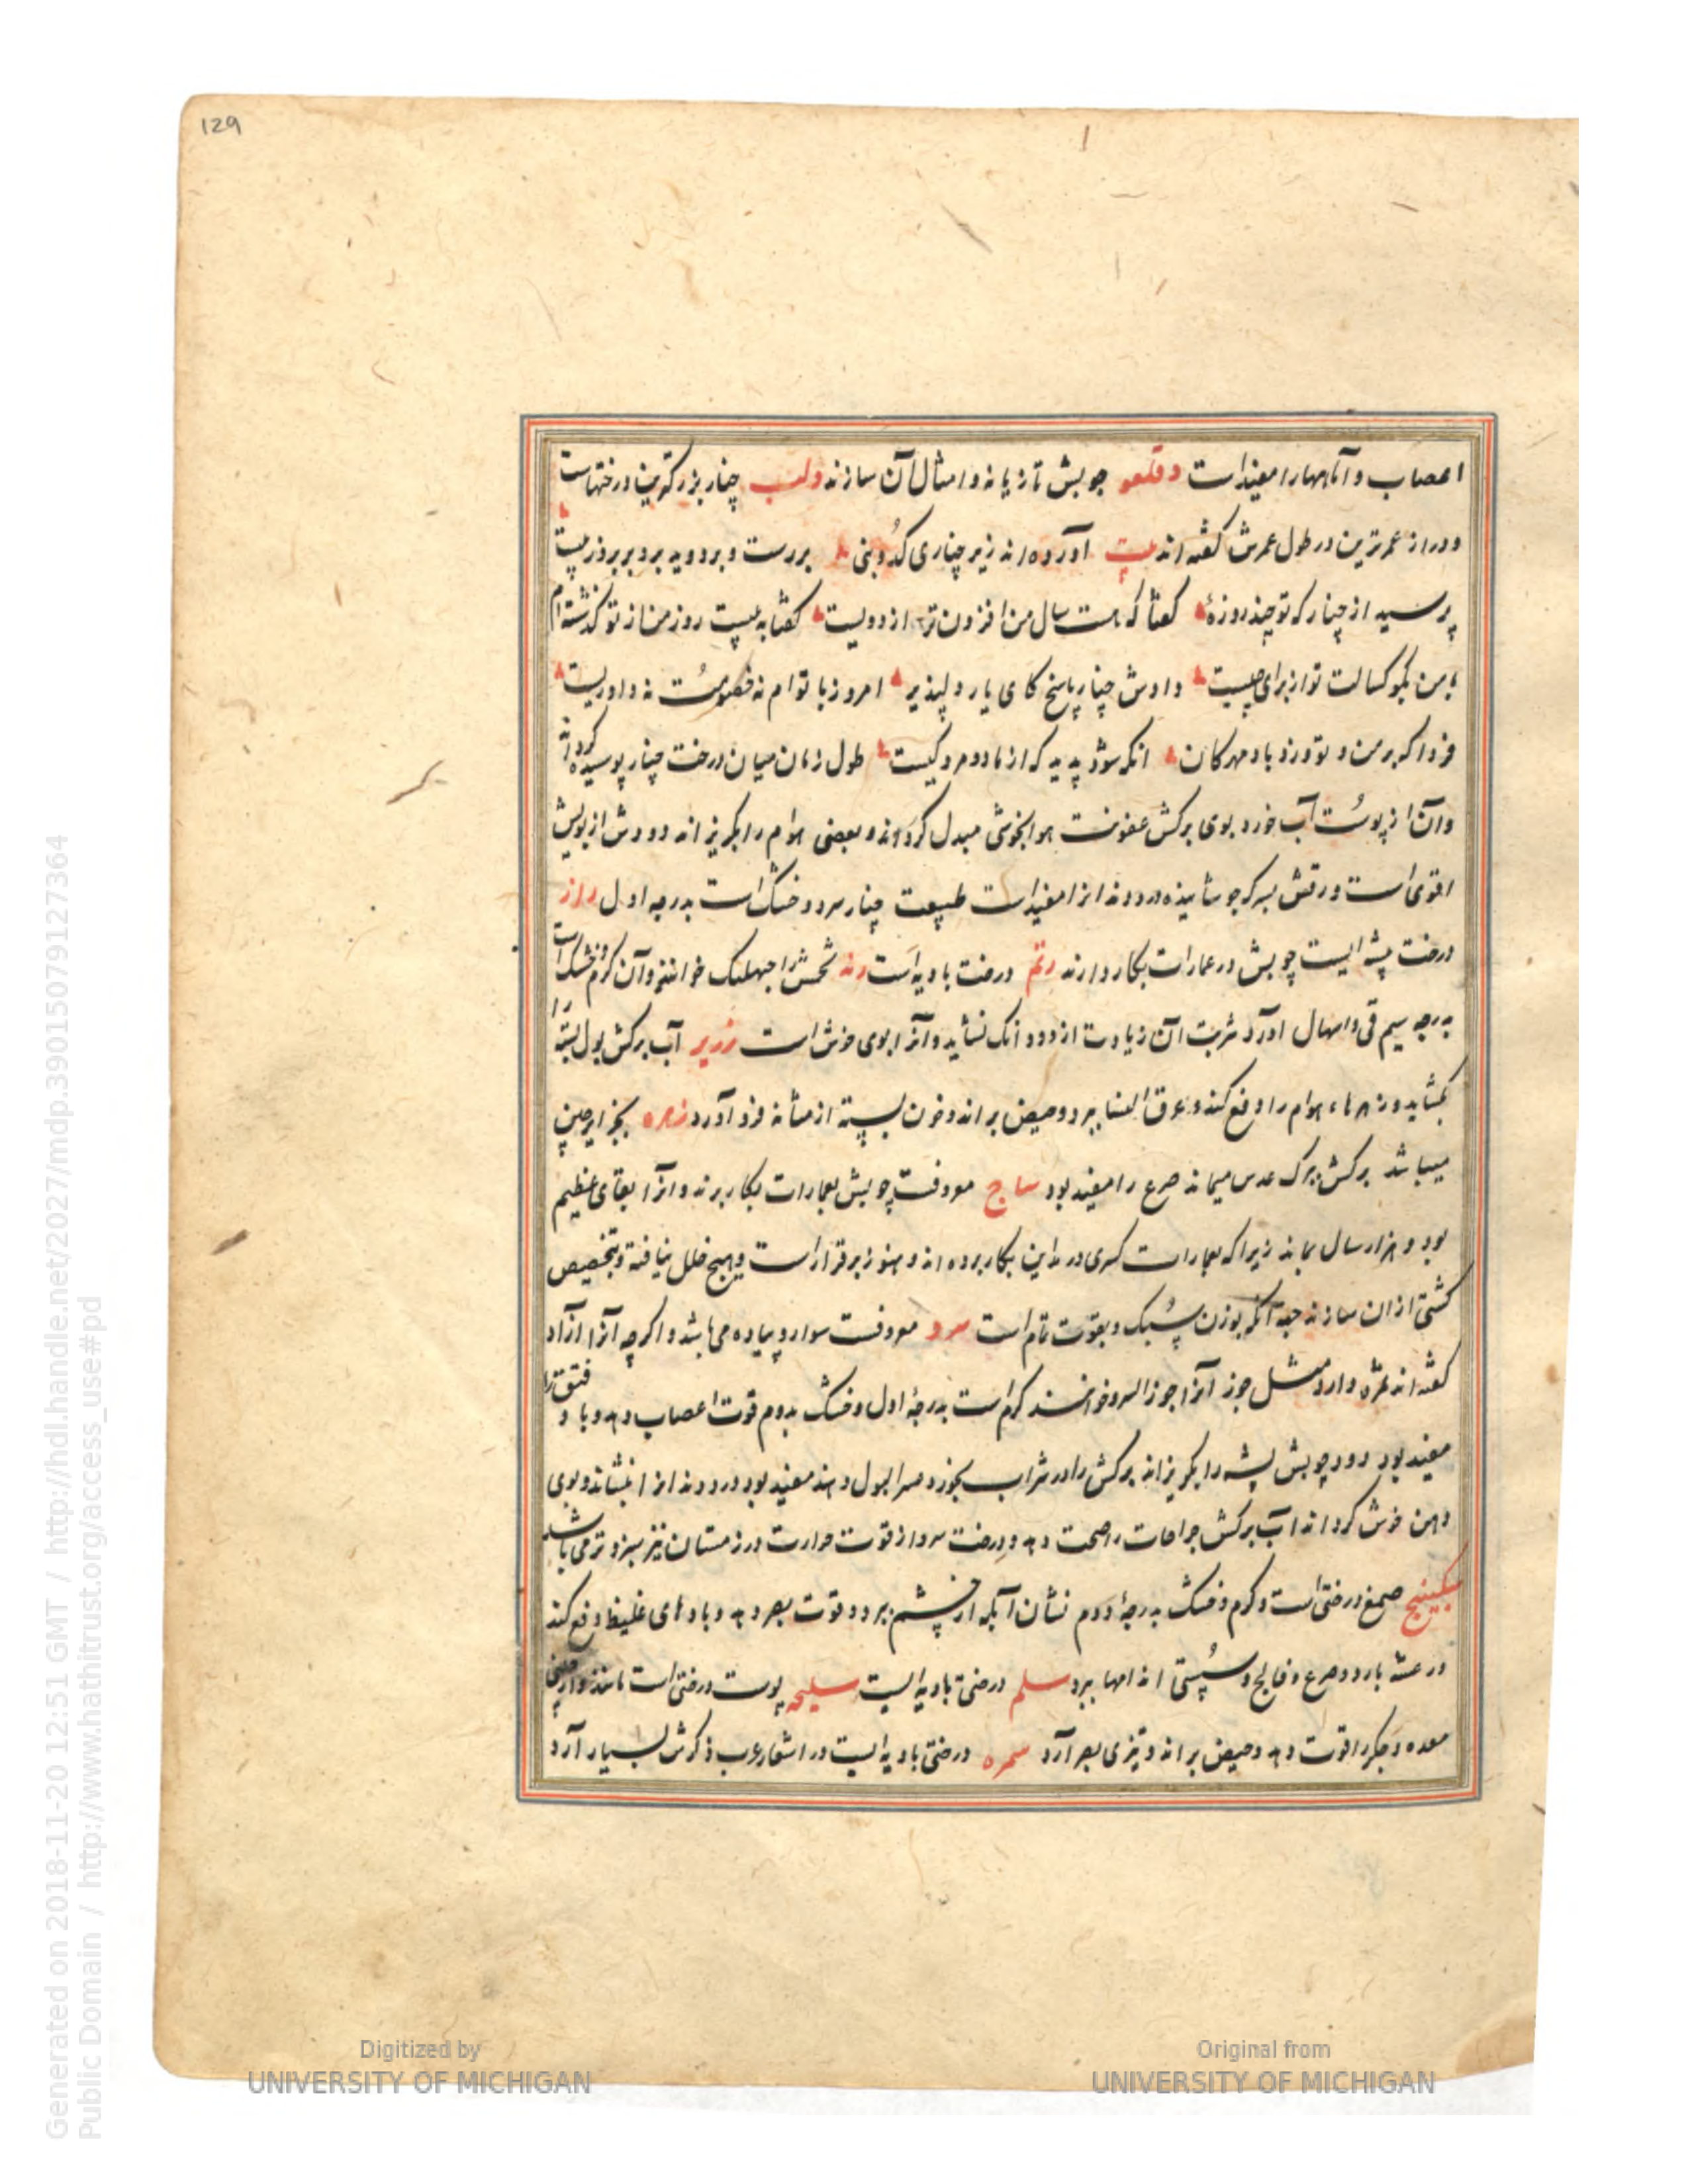 129
اعصاب و آماسها را مفیداست دقلعو چوبش تازیانه و امثال آن سازند دلب چنار بزرکترین درختهاست
و دراز عمرترین در طول عمرش کفته اند بیت آورده اند زیر چناری کدوبنی بررست و بردوید برو بر بروز بیست
پرسید از چنار که تو چند روزهٔ کفتا که هست سال من افزون تر از دویست کفتا به بیست روز من از تو کذشته ام
با من بکو کسالت تو از برای چیست دادش چنار پاسخ کای یار دلپذیر امروز با توام نه خصومت نه داوریست
فردا که بر من و تو وزد باد مهرکان انکه شود پدید که از ما دو مرد کیست طول زمان میان درخت چنار پوسیده کرداند
و آن از پوست آب خورد بوی برکش عفونت هوا بخوشی مبدل کرداند و بعضی هوام را بکریزاند دودش از بویش
اقوی است ورقش بسرکه جوشانیده درد دندانرا مفیداست طبیعت چنار سرد و خشک است بدرجه اول راز
درخت پیشه ایست چوبش در عمارات بکار دارند رتم درخت بادیه است رند تخمش را حبهلنک خوانند و آن کرم و خشک است
بدرجه سیم قی و اسهال اورد شربت آن زیادت از دو دانک نشاید و آنرا بوی خوش است زریر آب برکش بول بسته را
بکشاید و زهرهاء هوام را دفع کند و عرق النسا ببرد و حیض براند و خون بسته از مثانه فرود آورد زهره بجزایر چین
میباشد برکش ببرک عدس میماند صرع را مفید بود ساج معروفست چوبش بعمارات بکار برند و انرا بقای عظیم
بود و هزار سال بماند زیرا که بعمارات کسری در مداین بکار برده اند و هنوز برقرار است و هیچ خلل نیافته و بتخصیص
کشتی ازان سازند جهة آنکه بوزن سبک و بقوت تمام است سرو معروفست سوار و پیاده می باشد و اکرچه آنرا ازاد
کفته اند ثمره دارد مثل جوز آنرا جوز السرو خوانند کرم است بدرجهٔ اول و خشک بدوم قوت اعصاب دهد و با و فتق را
مفید بود دود چوبش پشه را بکریزاند برکش را در شراب بخورد عسر البول دهند مفید بود درد دندانرا بنشاند و بوی
دهن خوش کرداند آب برکش جراحات را صحت دهد و درخت سرو از قوت حرارت در زمستان نیز سبز و تر می باشد
سکبینج صمغ درختی است و کرم و خشک بدرجهٔ دوم نشان آبکه از چشم ببرد و قوت بصر دهد و بادهای غلیظ دفع کند
و رعشه بارد و صرع و فالج و سستی اندامها ببرد سلم درختی بادیه ایست سلیخه پوست درختی است مانند دارچینی
معده و جکر را قوت دهد و حیض براند و تیزی بصر آرد سمره درختی بادیه ایست در اشعار عرب ذکرش بسیار آرد
Generated on 2018-11-20 12:51 GMT / http://hdl.handle.net/2027/mdp.39015079127364
Public Domain / http://www.hathitrust.org/access_use#pd
Digitized by
UNIVERSITY OF MICHIGAN
Original from
UNIVERSITY OF MICHIGAN